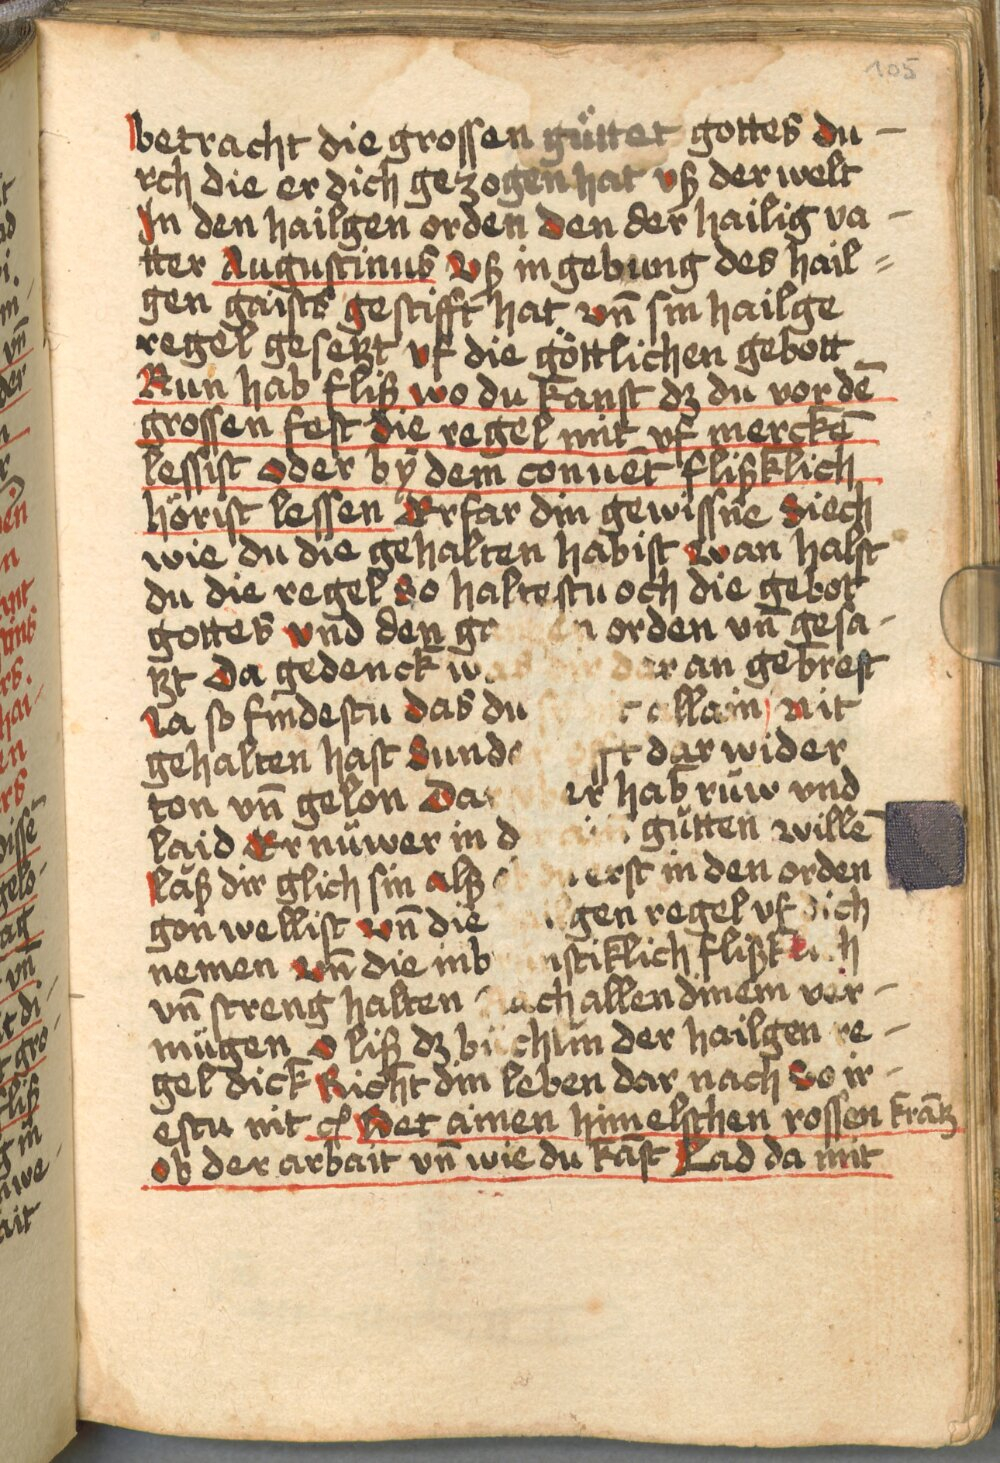 105
betracht die grossen güttet gottes du -
rch die er dich gezogen hat vß der welt
In den hailgen orden den der hailig va -
tter Augustinus vß in gebung des hail =
gen gaists gestifft hat vn̄ sin hailge
regel gesetzt vf die göttlichen gebott
Nun hab fliß wo du kanst dz du vor dē
grossen fest die regel mit vf merckē
lessist oder bÿ dem conuēt flißklich
hörist lessen Erfar din gewissne Siech
wie du die gehalten habist wan halst
du die regel So haltestu och die gebot
gottes vnd den orden vn̄ gesa -
tzt Da gedenck was dir dar an gebrest
la so findestu das du allain nit
gehalten hast Sunder offt dar wider
ton vn̄ gelon Dar hab rüw vnd
laid Ernüwer in gütten willē
laß dir glich sin alß ob du erst in den orden
gon wellist vn̄ die regel vf dich
nemen vn̄ die flißklich
vn̄ streng halten nach allen dinem ver -
mügen o liß dz büchlin der hailgen re -
gel dick Richt din leben dar nach So ir -
estu nit Bet ainen himelschen rossen krātz
ob der arbait vn̄ wie du kāst Lad da mit